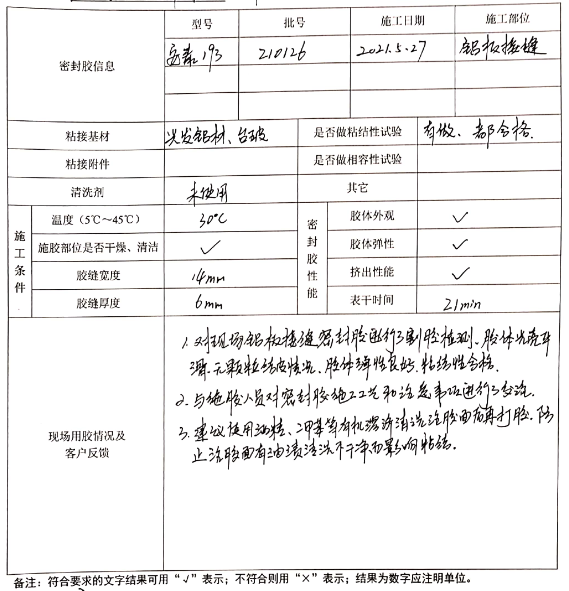 型号 批号 施工日期 施工部位
密封胶信息 193 210126 2021.5.27 铝板接缝
粘接基材 兴发铝材、台玻 是否做粘结性试验 有做、都合格.
粘接附件 是否做相容性试验
清洗剂 未使用 其它
施工条件 温度（5℃～45℃） 30℃ 密封胶性能 胶体外观 ✓
施胶部位是否干燥、清洁 ✓ 胶体弹性 ✓
胶缝宽度 14mm 挤出性能 ✓
胶缝厚度 6mm 表干时间 21min
现场用胶情况及
客户反馈
1. 对现场铝板接缝密封胶进行了割胶检测、胶体光亮平
滑.无颗粒结皮情况、胶体弹性良好.粘结性合格.
2. 与施胶人员对密封胶施工工艺和注意事项进行了交流.
3. 建议使用酒精、二甲苯等有机溶济清洗注胶面后再打胶.防
止注胶面有油渍清洗不干净而影响粘结.
备注：符合要求的文字结果可用“√”表示；不符合则用“×”表示；结果为数字应注明单位。